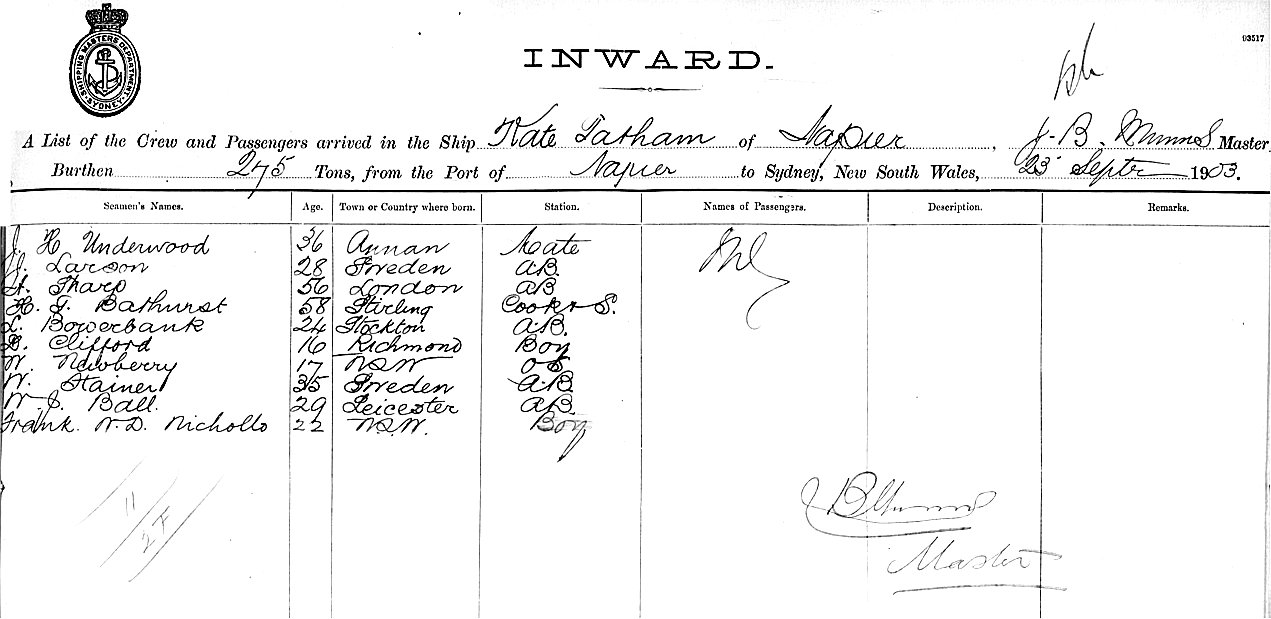 SHIPPING MASTERS DEPARTMENT SYDNEY
93517
INWARD.
A List of the Crew and Passengers arrived in the Ship Kate Tatham of Napier, J. B. Munns Master,
Burthen 275 Tons, from the Port of Napier to Sydney, New South Wales, 23 Septr 1903.
Seamen's Names. Age. Town or Country where born. Station. Names of Passengers. Description. Remarks.
J. H. Underwood 36 Annan Mate Nil
Larson 28 Sweden A.B.
Tharp 56 London AB
H. T. Bathurst 58 Stirling Cook & S.
L. Bowerbank 24 Stockton A.B.
Clifford 16 Richmond Boy
W. Newberry 17 NSW OS
W. Stainer 35 Sweden A.B.
W. J. Ball. 29 Leicester A.B.
Frank. W. D. Nicholls 22 N.S.W. Boy
11
27
J B Munns
Master